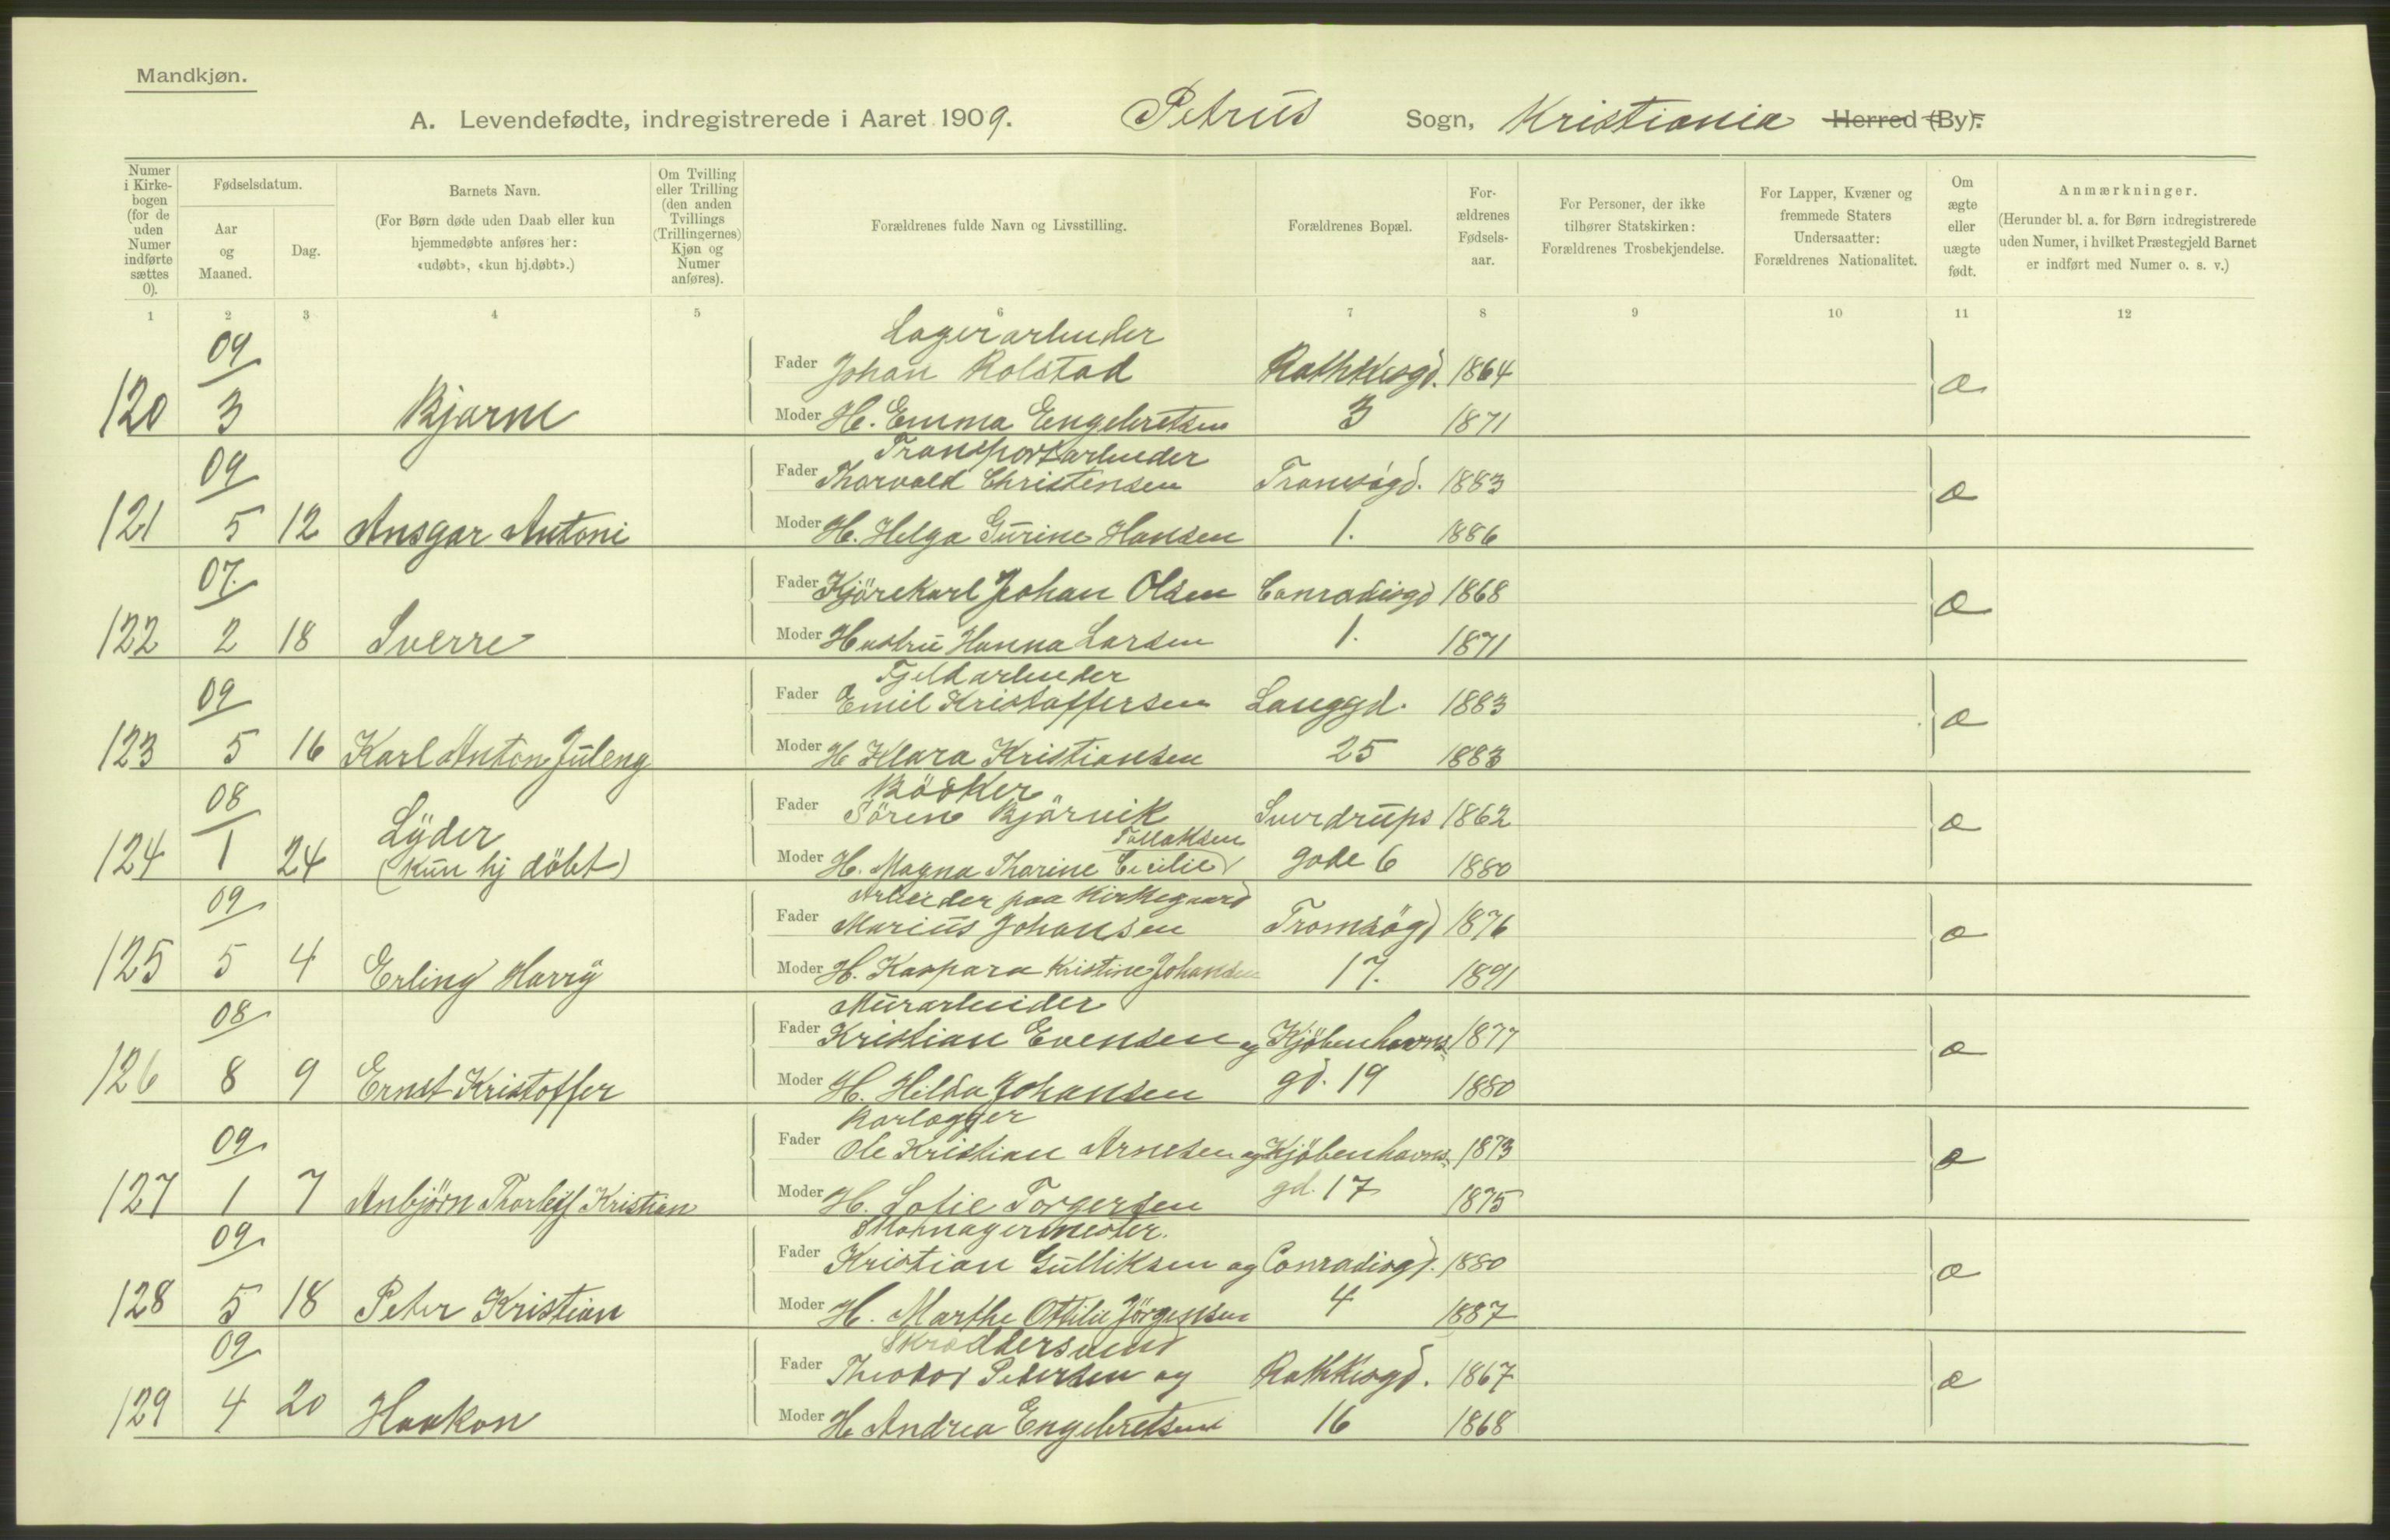 Mandkjøn.
A. Levendefødte, indregistrerede i Aaret 1909. Petrus Sogn, Kristiania Herred (By).
Numer i Kirke-bogen (for de uden Numer indførte sættes 0).
Fødselsdatum.
Aar og Maaned.
Dag.
Barnets Navn.
(For Børn døde uden Daab eller kun hjemmedøbte anføres her: «udøbt», «kun hj.døbt».)
Om Tvilling eller Trilling (den anden Tvillings (Trillingernes) Kjøn og Numer anføres).
Forældrenes fulde Navn og Livsstilling.
Forældrenes Bopæl.
For-ældrenes Fødsels-aar.
For Personer, der ikke tilhører Statskirken: Forældrenes Trosbekjendelse.
For Lapper, Kvæner og fremmede Staters Undersaatter: Forældrenes Nationalitet.
Om ægte eller uægte født.
Anmærkninger.
(Herunder bl. a. for Børn indregistrerede uden Numer, i hvilket Præstegjeld Barnet er indført med Numer o. s. v.)
1 2 3 4 5 6 7 8 9 10 11 12
09 Lagerarbeider
Fader Johan Rolstad Rathkesgd. 1864 æ
120 3 Bjarne Moder H. Emma Engebretsen 3 1871
09 Transportarbeider
Fader Thorvald Christensen Tromsøgd. 1883 æ
121 5 12 Ansgar Antoni Moder H. Helga Gurine Hansen 1. 1886
07. Fader Kjörekarl Johan Olsen Conradisgd 1868 æ
122 2 18 Sverre Moder Hustru Hanna Larsen 1. 1871
09 Fjeldarbeider
Fader Emil Kristoffersen Langgd. 1883 æ
123 5 16 Karl Anton Juleng Moder H Klara Kristiansen 25 1883
08 Bödker
Fader Sören Bjärvik Sverdrups 1862 æ
124 1 24 Lyder Tollaksen
(kun hj döbt) Moder H. Magna Thorine Cecilie gade 6 1880
09 Arbeider paa Kirkegaard
Fader Marius Johansen Tromsögd 1876 æ
125 5 4 Erling Harry Moder H. Kaspara Kristine Johansen 17. 1891
08 Murarbeider
Fader Kristian Evensen og Kjöbenhavns 1877 æ
126 8 9 Ernst Kristoffer Moder H. Hilda Johansen gd. 19 1880
09 Rørlægger
Fader Ole Kristian Arnesen og Kjöbenhavns 1873 æ
127 1 7 Anbjörn Thorleif Kristian Moder H. Sofie Torgersen gd. 17 1875
09 Skomagermester.
Fader Kristian Gulliksen og Conradisgd. 1880 æ
128 5 18 Peter Kristian Moder H. Marthe Ottilie Jörgensen 4 1887
09 Skræddersvend
Fader Theodor Petersen og Rathkesgd. 1867 æ
129 4 20 Haakon Moder H Andrea Engebretsen 16 1868